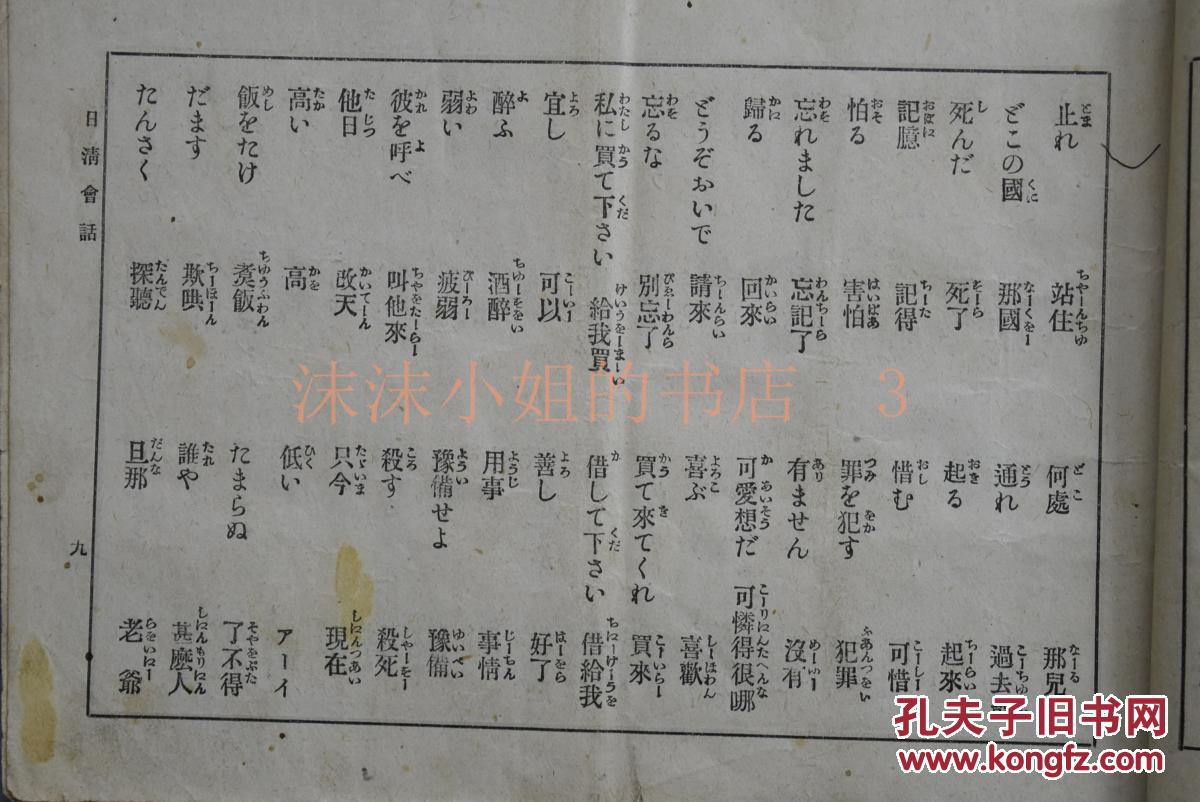 止れ 站住 何處 那兒
どこの國 那國 通れ 過去
死んだ 死了 起る 起來
記臆 記得 惜む 可惜
怕る 害怕 罪を犯す 犯罪
忘れました 忘記了 有ません 沒有
歸る 回來 可愛想だ 可憐得很哪
どうぞおいで 請來 喜ぶ 喜歡
忘るな 別忘了 買て來てくれ 買來
私に買て下さい 給我買 借して下さい 借給我
宜し 可以 善し 好了
醉ふ 酒醉 用事 事情
弱い 疲弱 豫備せよ 豫備
彼を呼べ 叫他來 殺す 殺死
他日 改天 只今 現在
高い 高 低い アーイ
飯をたけ 煑飯 たまらぬ 了不得
だます 欺哄 誰や 甚麽人
たんさく 探聽 旦那 老爺
日淸會話 九
沫沫小姐的书店 3
孔夫子旧书网
www.kongfz.com